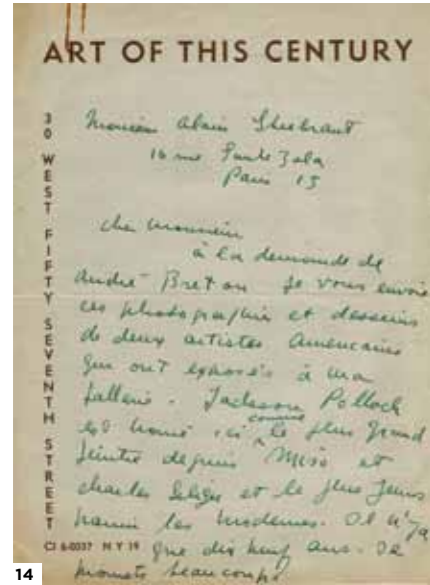 ART OF THIS CENTURY
30 WEST FIFTY SEVENTH STREET
Monsieur Alain
16 rue Zola
Paris 15
cher monsieur
à la demande de
André Breton je vous envoie
ces photographies et dessins
de deux artistes Americains
qui ont exposés à ma
Gallerie. Jackson Pollock
est ici comme le plus grand
peintre depuis Miró et
charles Seliger et le plus jeune
parmi les modernes. Il n'y a
CI 6-0037 N Y 19
que dix neuf ans. Il
promets beaucoup
14